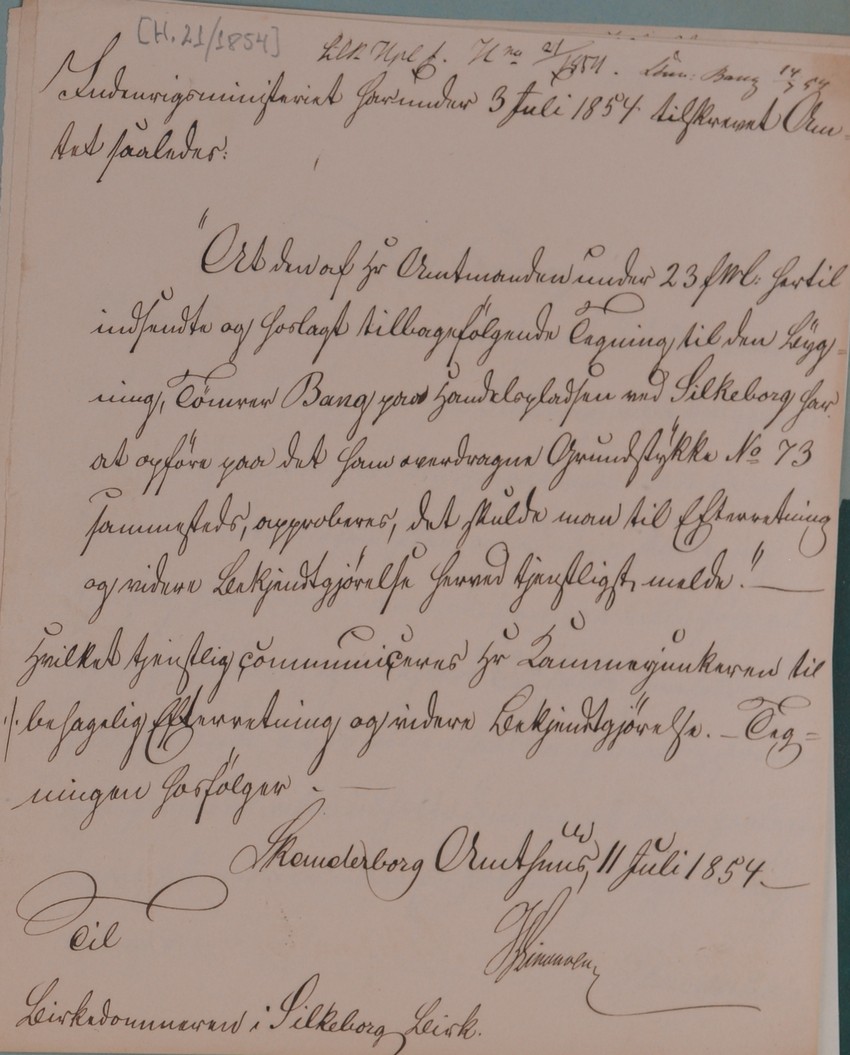 [H.21/1854]
Slk Hpl. f. H no 21/1854. Tømr: Bang 14/7 54
Indenrigsministeriet har under 3 Juli 1854 tilskrevet Am-
tet saaledes:
"At den af Hr Amtmanden under 23 f.M: hertil
indsendte og hoslagt tilbagefølgende Tegning til den Byg=
ning, Tömrer Bang paa Handelspladsen ved Silkeborg har
at opföre paa det ham overdragne Grundstykke No 73
sammesteds, approberes, det skulde man til Efterretning
og videre Bekjendtgjörelse herved tjenstligst melde."
Hvilket tjenstlig communiceres Hr Kammerjunkeren til
./. behagelig Efterretning og videre Bekjendtgjörelse. – Teg=
ningen hosfölger.
Skanderborg Amthuus, 11 Juli 1854
Til
Birkedommeren i Silkeborg Birk.